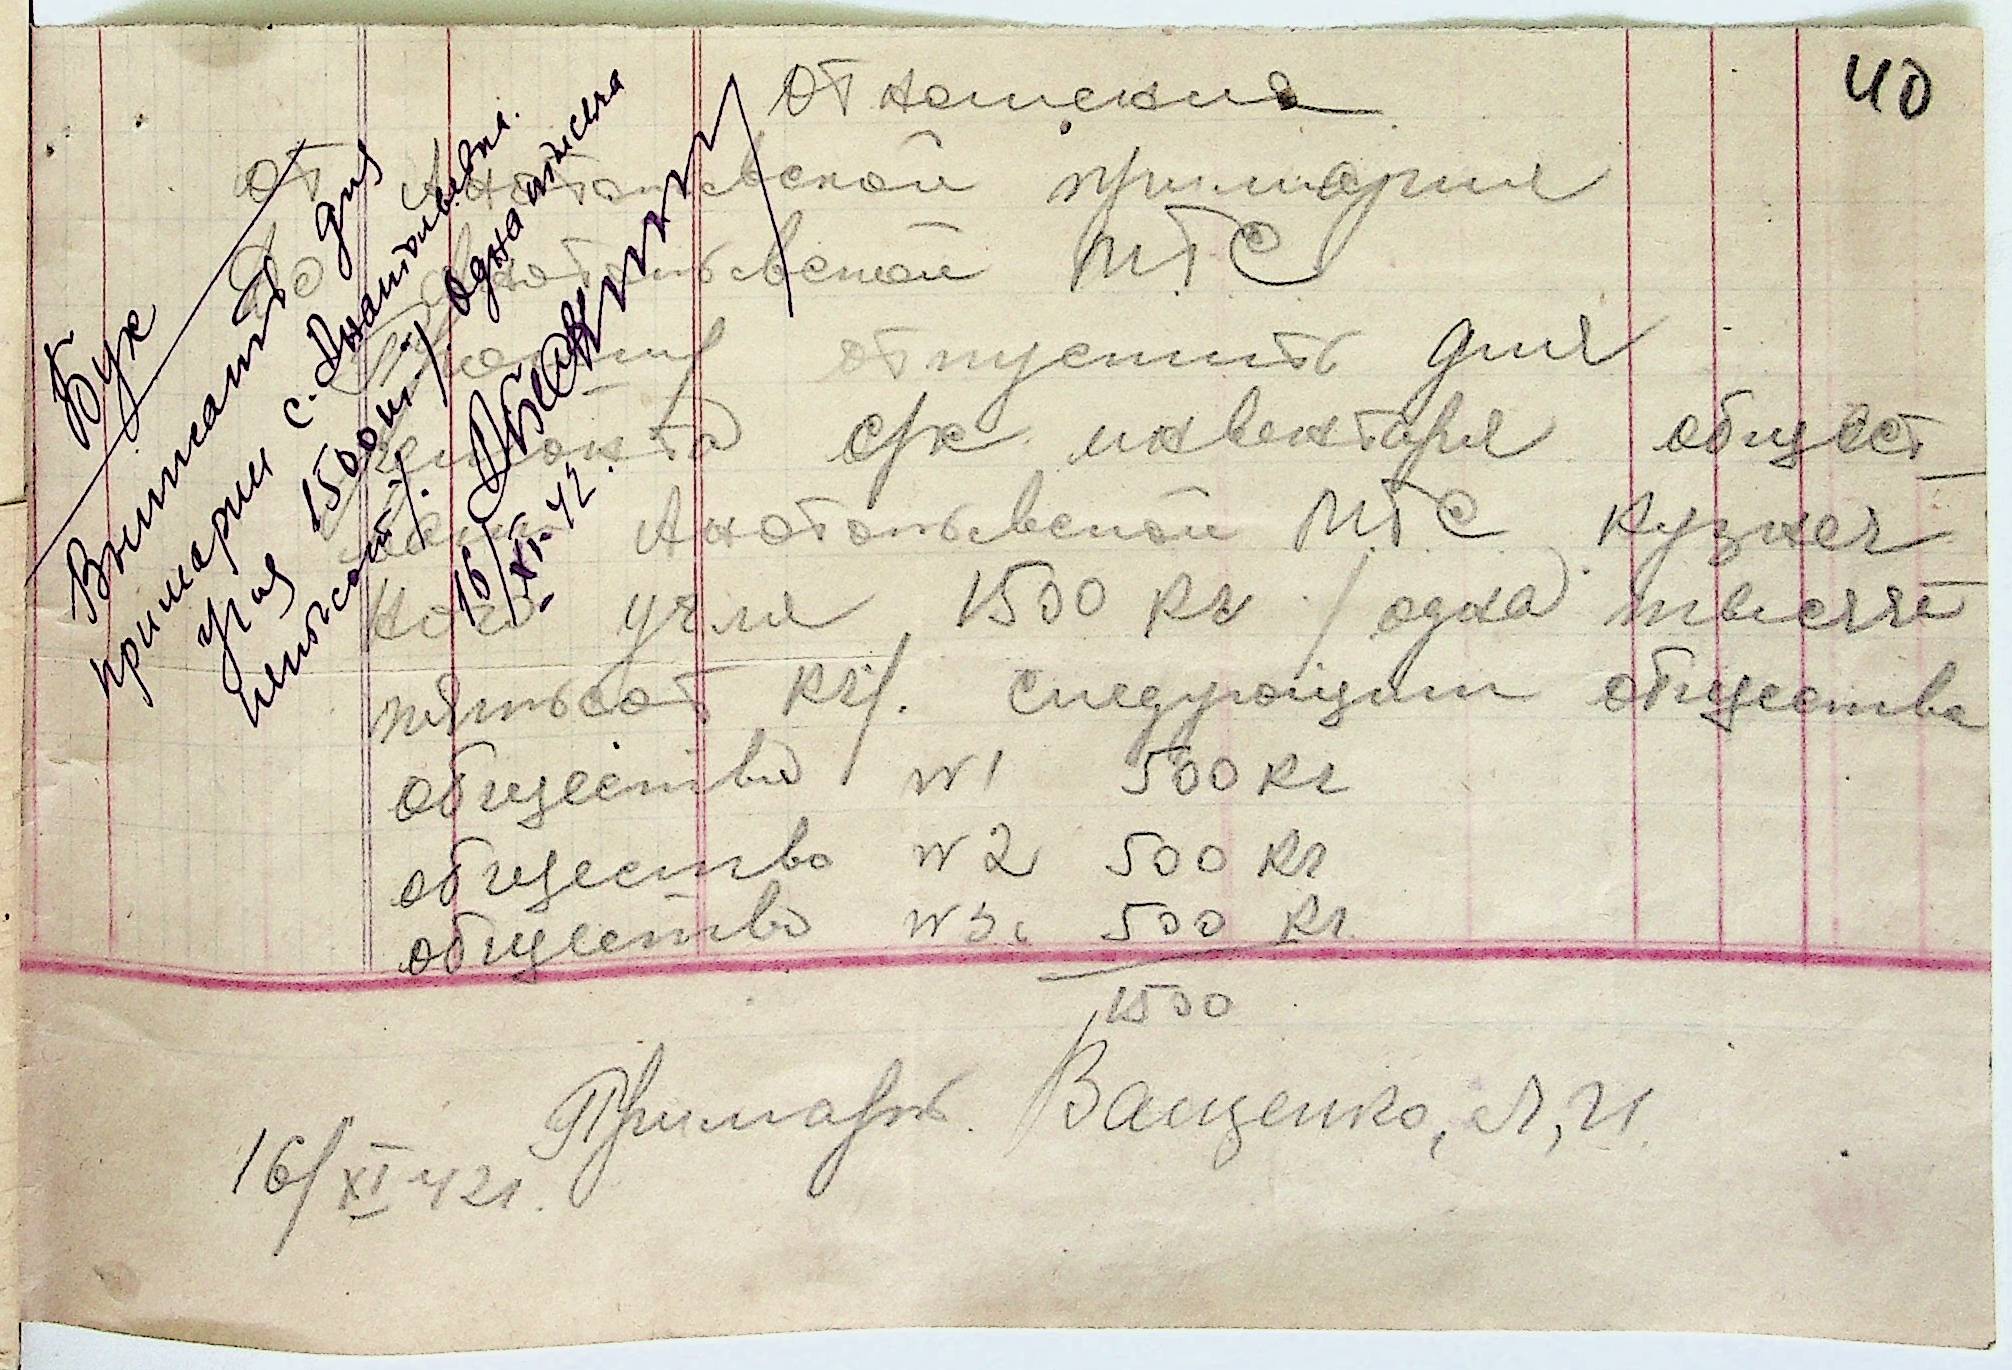 40
Отношения
от Анатольевской примарии
До Анатольевской МТС
Прошу отпустить для
ремонта с/х инвентаря общест
вам Анатольевской МТС кузнеч
ного угля 1500 кг /одна тысяча
пятьсот кг/. следующим общества
общество №1 500 кг
общество №2 500 кг
общество №3. 500 кг
1500
Примарь. Ващенко, А, И.
16/XI 42 г.
Бух
Выписать для
примарии с. Анатольевки.
угля 1500 кг / одна тысяча
пятьсот /.
16/XI-42.